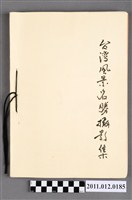 台湾風景名勝攝影集
2011.012.0185